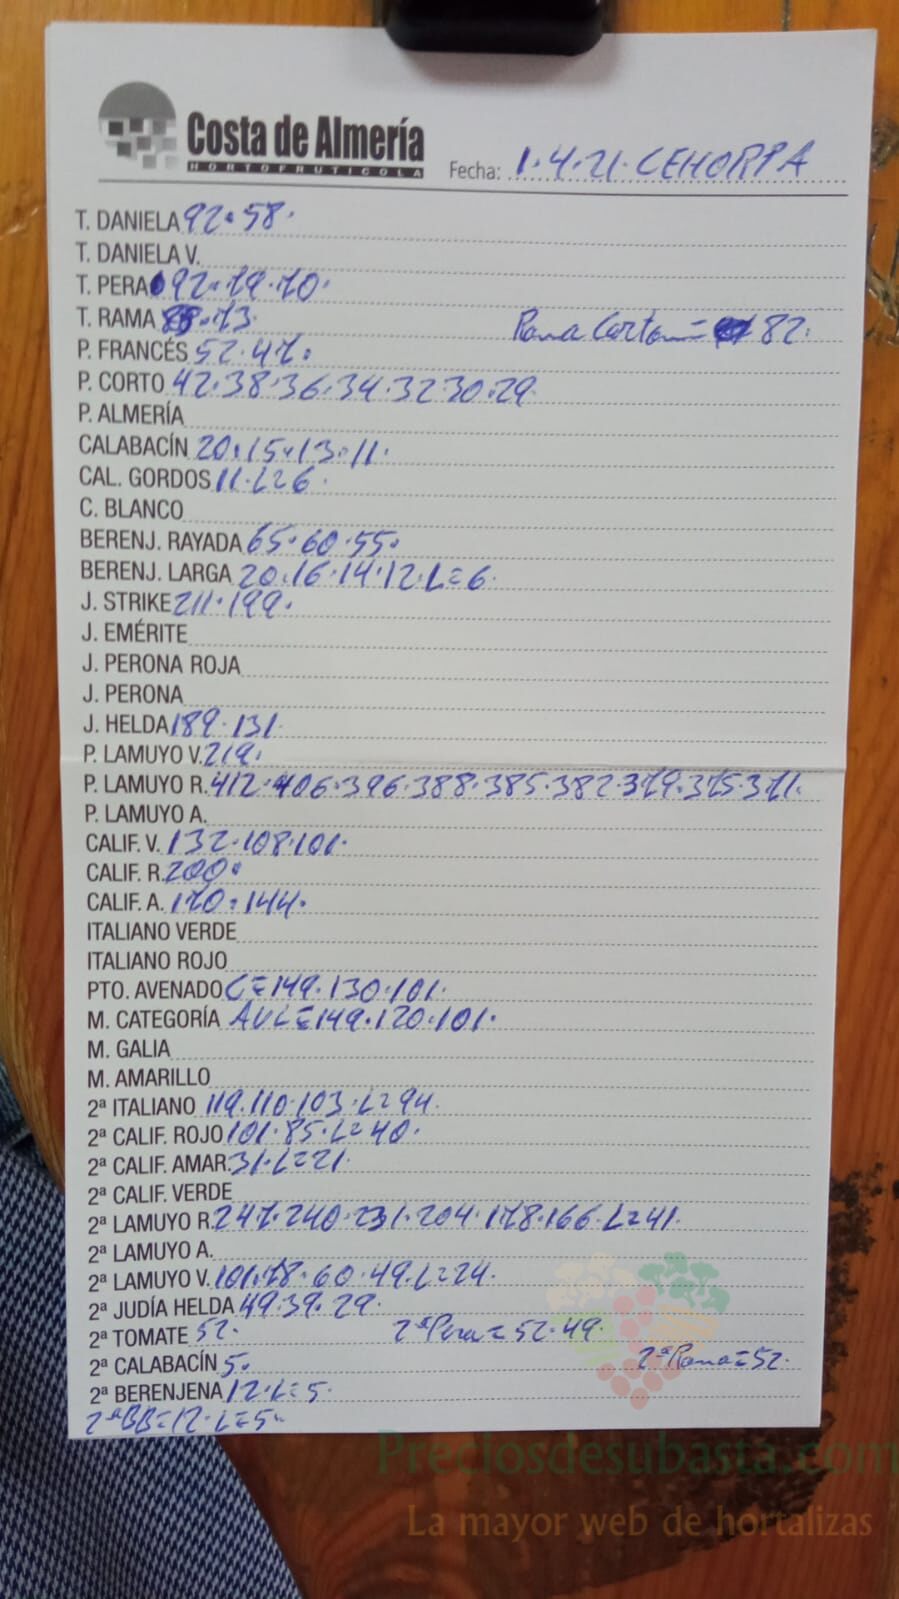 Costa de Almería
HORTOFRUTICOLA
Fecha: 1.4.21. CEHORPA
T. DANIELA 92.58.
T. DANIELA V.
T. PERA 92.79.70.
T. RAMA 73. Rama Corta = 82.
P. FRANCÉS 52.47.
P. CORTO 42.38.36.34.32 30.29
P. ALMERÍA
CALABACÍN 20.15.13.11.
CAL. GORDOS 11.L=6.
C. BLANCO
BERENJ. RAYADA 65.60.55.
BERENJ. LARGA 20.16.14.12.L=6.
J. STRIKE 211.199.
J. EMÉRITE
J. PERONA ROJA
J. PERONA
J. HELDA 189.131.
P. LAMUYO V. 219.
P. LAMUYO R. 412.406.396.388.385.382.379.375.371.
P. LAMUYO A.
CALIF. V. 132.108.101.
CALIF. R. 200.
CALIF. A. 170.144.
ITALIANO VERDE
ITALIANO ROJO
PTO. AVENADO C=149.130.101.
M. CATEGORÍA AVL=149.120.101.
M. GALIA
M. AMARILLO
2ª ITALIANO 119.110.103.L=94.
2ª CALIF. ROJO 101.85.L=40.
2ª CALIF. AMAR. 31.L=21.
2ª CALIF. VERDE
2ª LAMUYO R. 247.240.231.204.178.166.L=41.
2ª LAMUYO A.
2ª LAMUYO V. 101.78.60.49.L=24.
2ª JUDÍA HELDA 49.39.29.
2ª TOMATE 52. 2ª Pera = 52.49.
2ª CALABACÍN 5. 2ª Rama = 52.
2ª BERENJENA 12.L=5.
2ª BB=12.L=5.
Preciosdesubasta.com
La mayor web de hortalizas